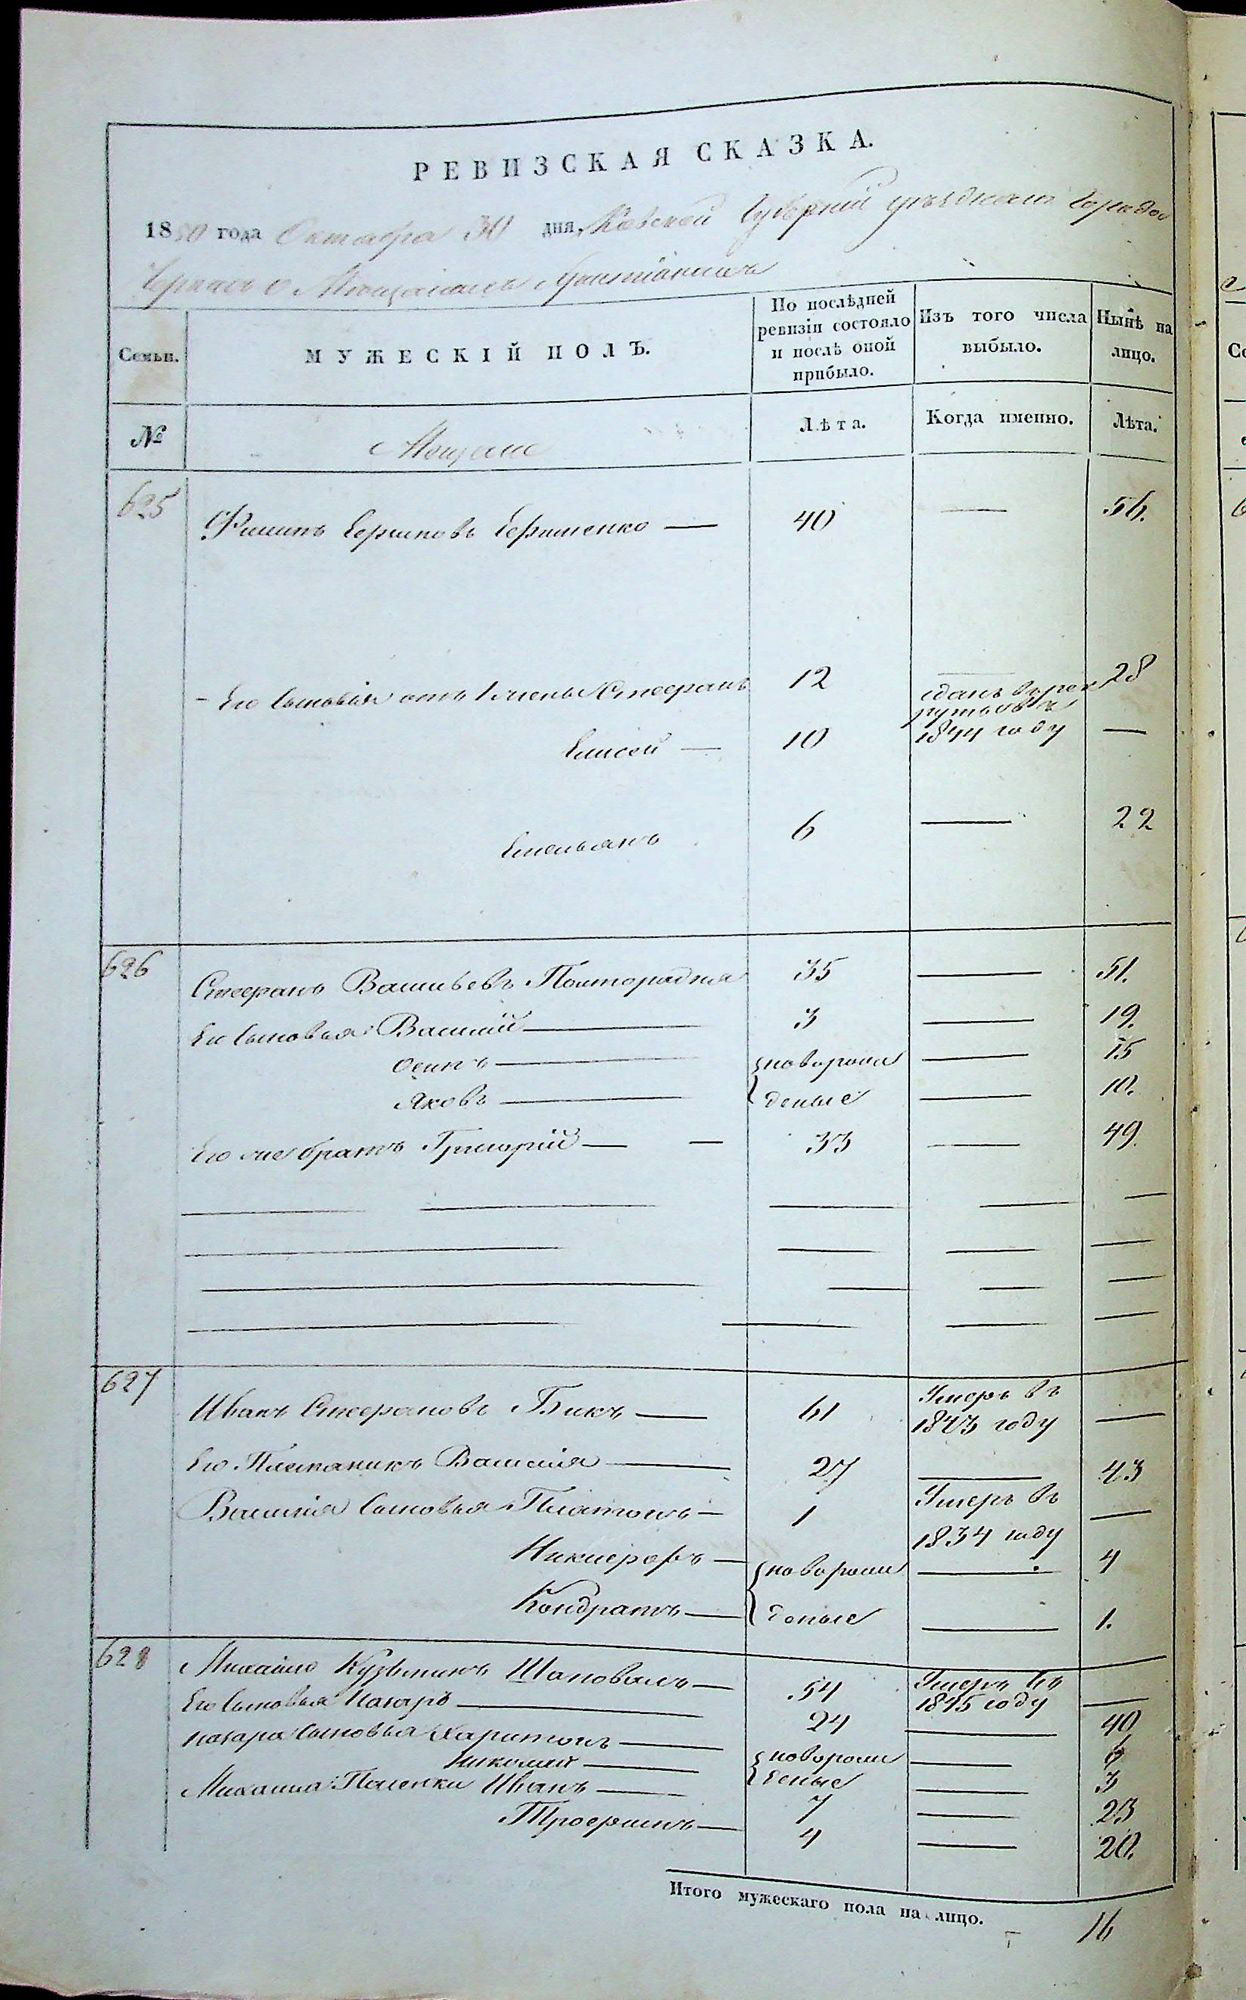 РЕВИЗСКАЯ СКАЗКА.
1850 года Октября 30 дня Кіевской Губерніи уѣзднаго Города
Черкасъ о Мещанахъ Христіанахъ
Семьи.
МУЖЕСКІЙ ПОЛЪ.
По послѣдней ревизіи состояло и послѣ оной прибыло.
Изъ того числа выбыло.
Нынѣ на лицо.
№
Мещане
Лѣта.
Когда именно.
Лѣта.
625
Филипъ 40 — 56.
Его Сыновья отъ 1 жены Стефанъ 12 — 28
Елисей — 10 сданъ в рекруты въ 1844 году —
Емельянъ 6 — 22
626
Стефанъ Васильевъ 35 — 51.
Его Сыновья: Василий — 3 — 19.
Осипъ — новорож — 15
Яковъ — деные — 10.
Его же братъ Григорій — 33 — 49.
627
Иванъ Стефановъ Бикъ — 61 Умеръ въ 1843 году —
Его Племяникъ Василія — 27 — 43
Василія Сыновья Платонъ — 1 Умеръ въ 1834 году —
Никиеферъ — новорож — 4
Кондратъ — деные — 1.
628
Михайло Кузьминъ Шаповалъ — 54 Умеръ въ 1845 году —
Его Сыновья Назаръ — 24 — 40
Назара Сыновья Харитонъ — новорож — 6
Николай — деные — 3
Михаила Иванъ — 7 — 23
Трофимъ — 4 — 20.
Итого мужескаго пола на лицо. 16